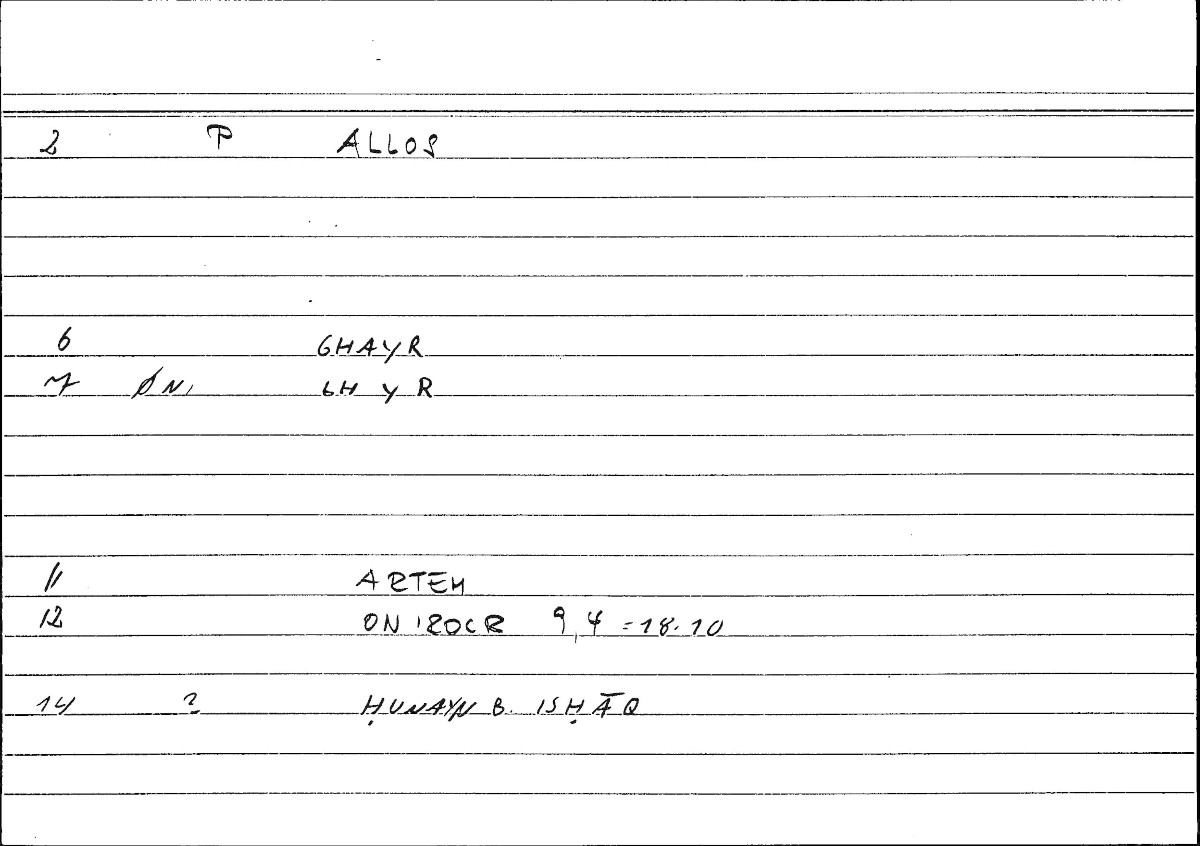 2 P ALLOS
6 GHAYR
7 ØN, GH Y R
11 ARTEM
12 ONIROCR 9,4 =18.10
14 ? ḤUNAYN B. ISḤĀQ